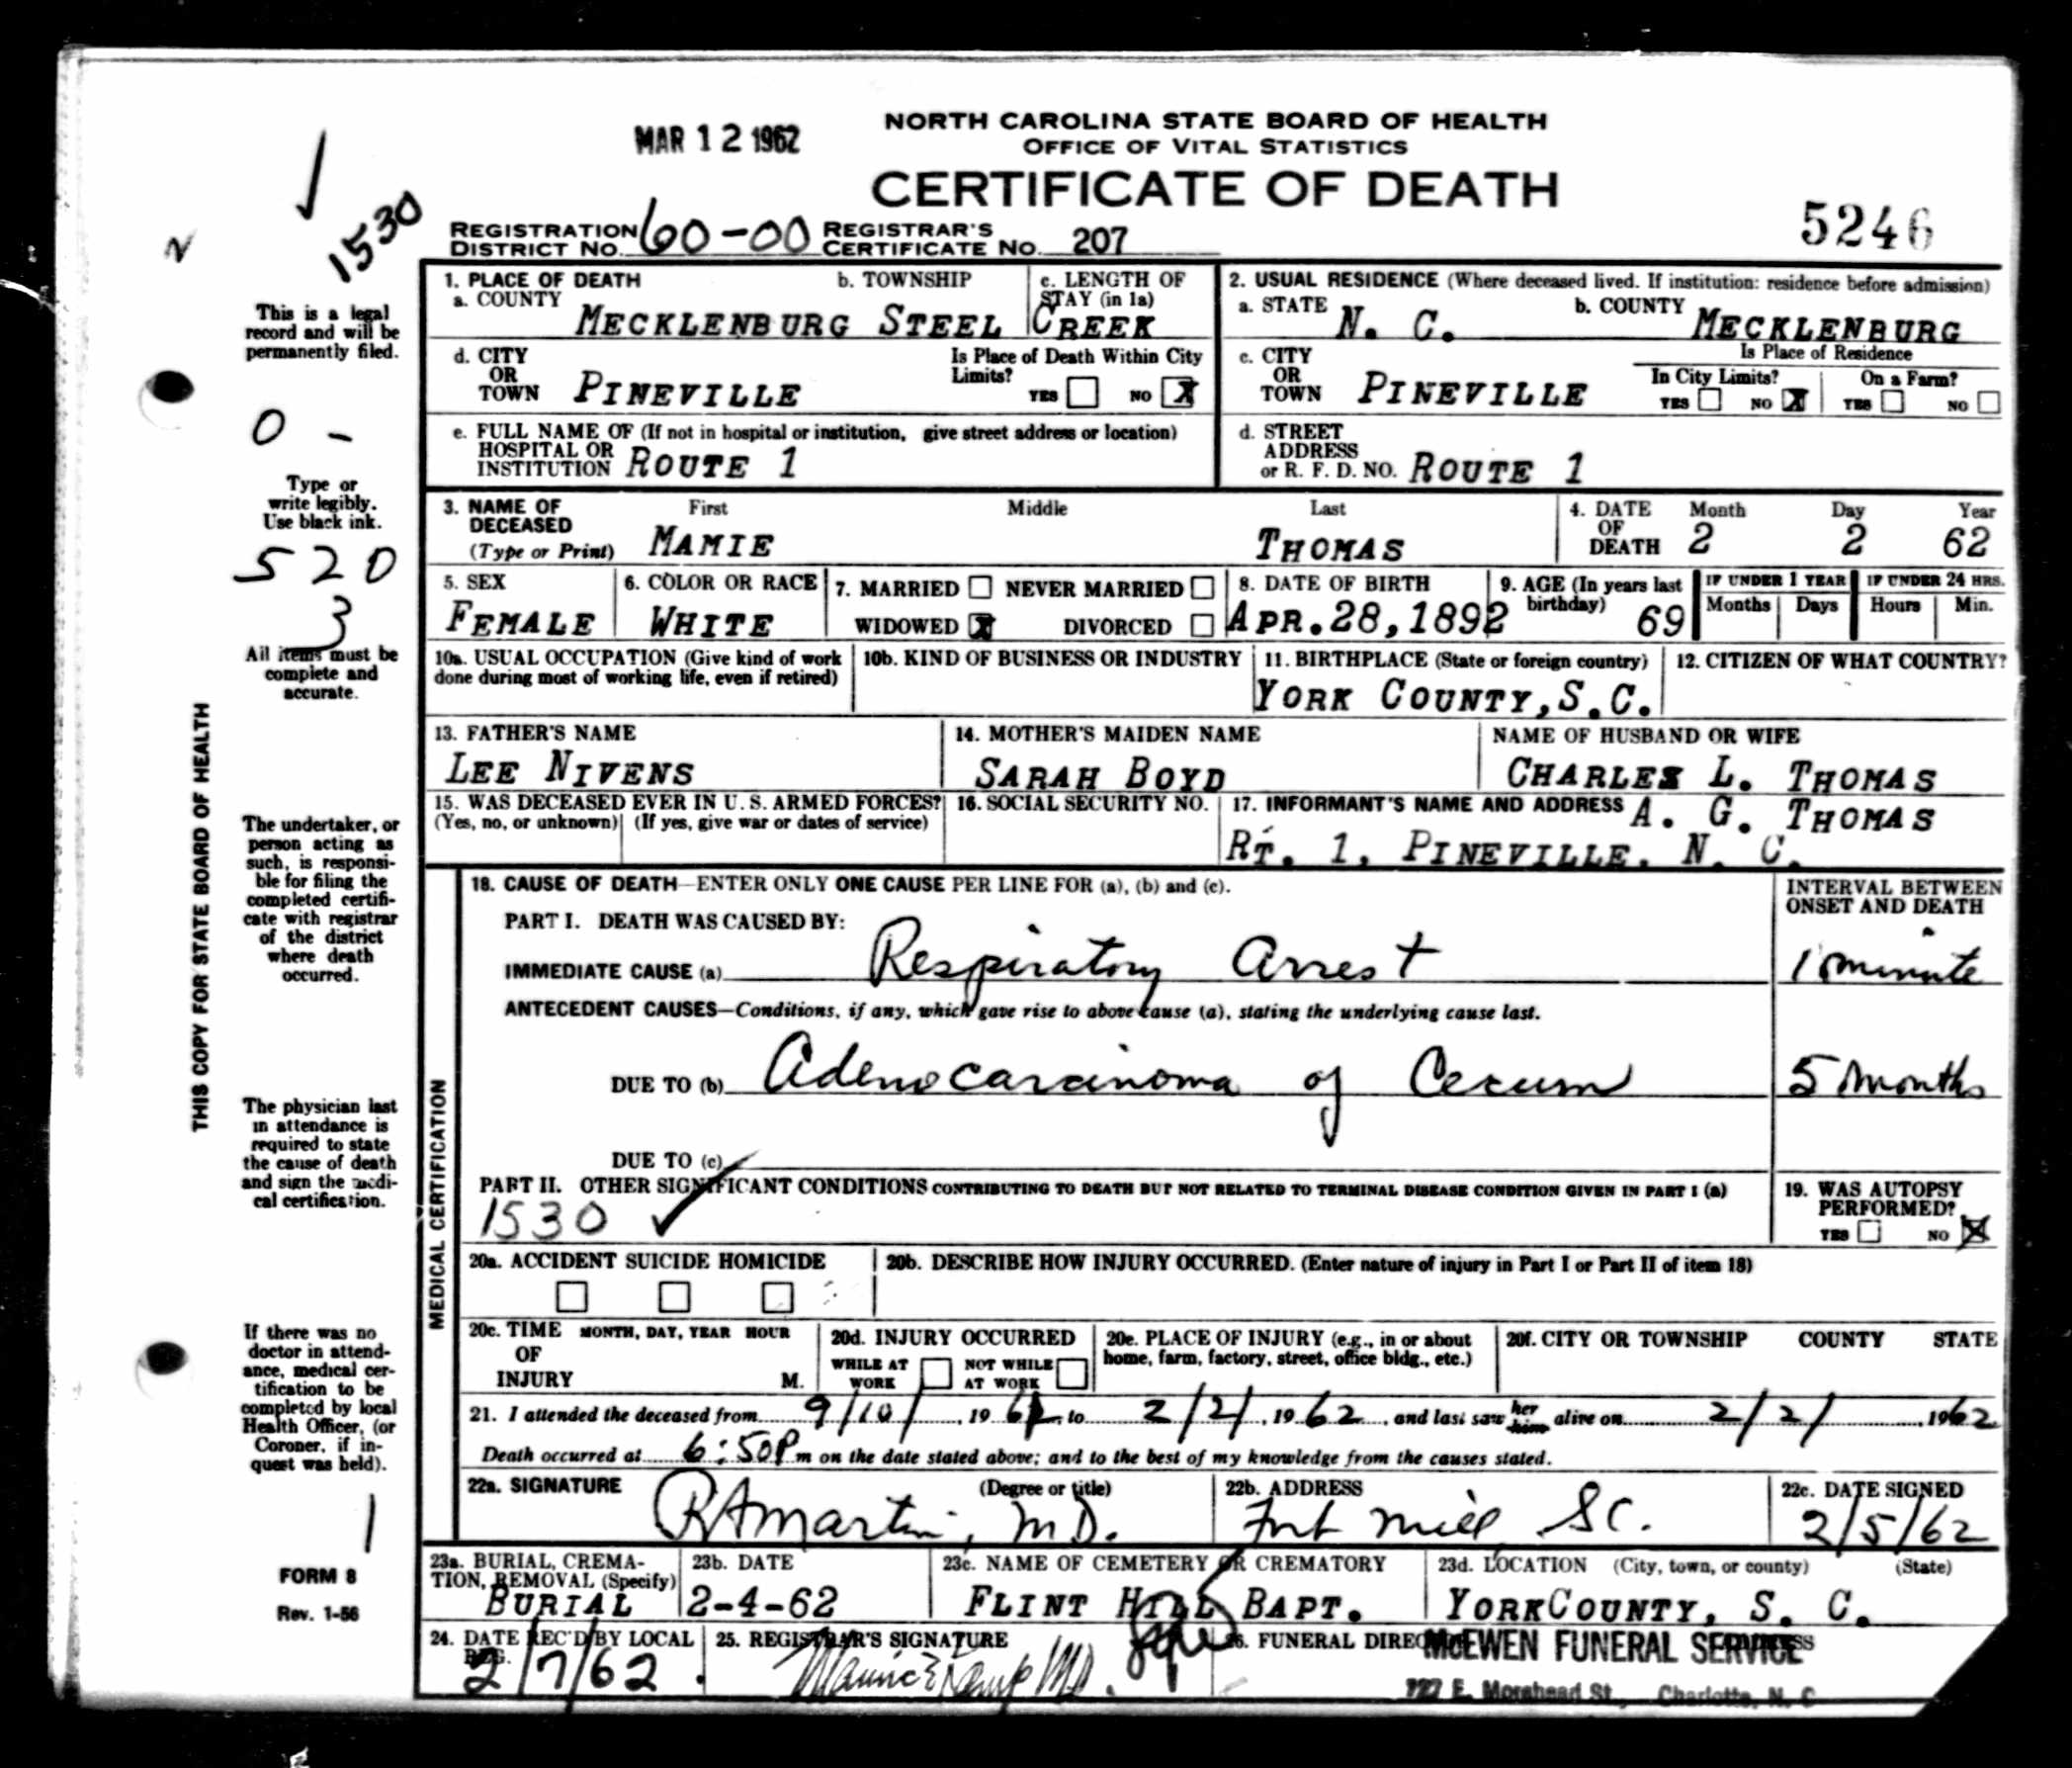 MAR 12 1962
NORTH CAROLINA STATE BOARD OF HEALTH
OFFICE OF VITAL STATISTICS
CERTIFICATE OF DEATH
5246
1530
N
REGISTRATION DISTRICT NO. 60-00 REGISTRAR'S CERTIFICATE NO. 207
This is a legal
record and will be
permanently filed.
0 -
Type or
write legibly.
Use black ink.
520
3
All items must be
complete and
accurate.
THIS COPY FOR STATE BOARD OF HEALTH
The undertaker, or
person acting as
such, is responsi-
ble for filing the
completed certifi-
cate with registrar
of the district
where death
occurred.
The physician last
in attendance is
required to state
the cause of death
and sign the medi-
cal certification.
If there was no
doctor in attend-
ance, medical cer-
tification to be
completed by local
Health Officer, (or
Coroner, if in-
quest was held).
1
FORM 8
Rev. 1-56
1. PLACE OF DEATH
a. COUNTY MECKLENBURG
b. TOWNSHIP STEEL CREEK
c. LENGTH OF STAY (in 1a)
2. USUAL RESIDENCE (Where deceased lived. If institution: residence before admission)
a. STATE N. C.
b. COUNTY MECKLENBURG
d. CITY OR TOWN PINEVILLE
Is Place of Death Within City Limits? YES NO X
c. CITY OR TOWN PINEVILLE
Is Place of Residence
In City Limits? YES NO X
On a Farm? YES NO
e. FULL NAME OF (If not in hospital or institution, give street address or location)
HOSPITAL OR
INSTITUTION ROUTE 1
d. STREET ADDRESS or R. F. D. NO. ROUTE 1
3. NAME OF DECEASED (Type or Print)
First MAMIE
Middle
Last THOMAS
4. DATE OF DEATH Month 2 Day 2 Year 62
5. SEX FEMALE
6. COLOR OR RACE WHITE
7. MARRIED NEVER MARRIED
WIDOWED X DIVORCED
8. DATE OF BIRTH APR.28,1892
9. AGE (In years last birthday) 69
IF UNDER 1 YEAR Months Days
IF UNDER 24 HRS. Hours Min.
10a. USUAL OCCUPATION (Give kind of work
done during most of working life, even if retired)
10b. KIND OF BUSINESS OR INDUSTRY
11. BIRTHPLACE (State or foreign country)
YORK COUNTY,S.C.
12. CITIZEN OF WHAT COUNTRY?
13. FATHER'S NAME
LEE NIVENS
14. MOTHER'S MAIDEN NAME
SARAH BOYD
NAME OF HUSBAND OR WIFE
CHARLES L. THOMAS
15. WAS DECEASED EVER IN U. S. ARMED FORCES?
(Yes, no, or unknown) (If yes, give war or dates of service)
16. SOCIAL SECURITY NO.
17. INFORMANT'S NAME AND ADDRESS A. G. THOMAS
RT. 1, PINEVILLE, N. C.
MEDICAL CERTIFICATION
18. CAUSE OF DEATH—ENTER ONLY ONE CAUSE PER LINE FOR (a), (b) and (c).
INTERVAL BETWEEN ONSET AND DEATH
PART I. DEATH WAS CAUSED BY:
IMMEDIATE CAUSE (a) Respiratory Arrest 1 minute
ANTECEDENT CAUSES—Conditions, if any, which gave rise to above cause (a), stating the underlying cause last.
DUE TO (b) Adenocarcinoma of Cecum 5 months
DUE TO (c)
PART II. OTHER SIGNIFICANT CONDITIONS CONTRIBUTING TO DEATH BUT NOT RELATED TO TERMINAL DISEASE CONDITION GIVEN IN PART I (a)
1530
19. WAS AUTOPSY PERFORMED? YES NO X
20a. ACCIDENT SUICIDE HOMICIDE
20b. DESCRIBE HOW INJURY OCCURRED. (Enter nature of injury in Part I or Part II of item 18)
20c. TIME OF INJURY MONTH, DAY, YEAR HOUR M.
20d. INJURY OCCURRED
WHILE AT WORK NOT WHILE AT WORK
20e. PLACE OF INJURY (e.g., in or about
home, farm, factory, street, office bldg., etc.)
20f. CITY OR TOWNSHIP COUNTY STATE
21. I attended the deceased from 9/10/, 1961, to 2/2/, 1962, and last saw her him alive on 2/2/, 1962
Death occurred at 6:50P m on the date stated above; and to the best of my knowledge from the causes stated.
22a. SIGNATURE (Degree or title)
RAMartin, M.D.
22b. ADDRESS
Fort Mill SC.
22c. DATE SIGNED
2/5/62
23a. BURIAL, CREMA-
TION, REMOVAL (Specify)
BURIAL
23b. DATE
2-4-62
23c. NAME OF CEMETERY OR CREMATORY
FLINT HILL BAPT.
23d. LOCATION (City, town, or county) (State)
YORKCOUNTY, S. C.
24. DATE REC'D BY LOCAL REG.
2/7/62
25. REGISTRAR'S SIGNATURE
Maurice Kamp MD.
26. FUNERAL DIRECTOR
MCEWEN FUNERAL SERVICE
727 E. Morehead St., Charlotte, N. C